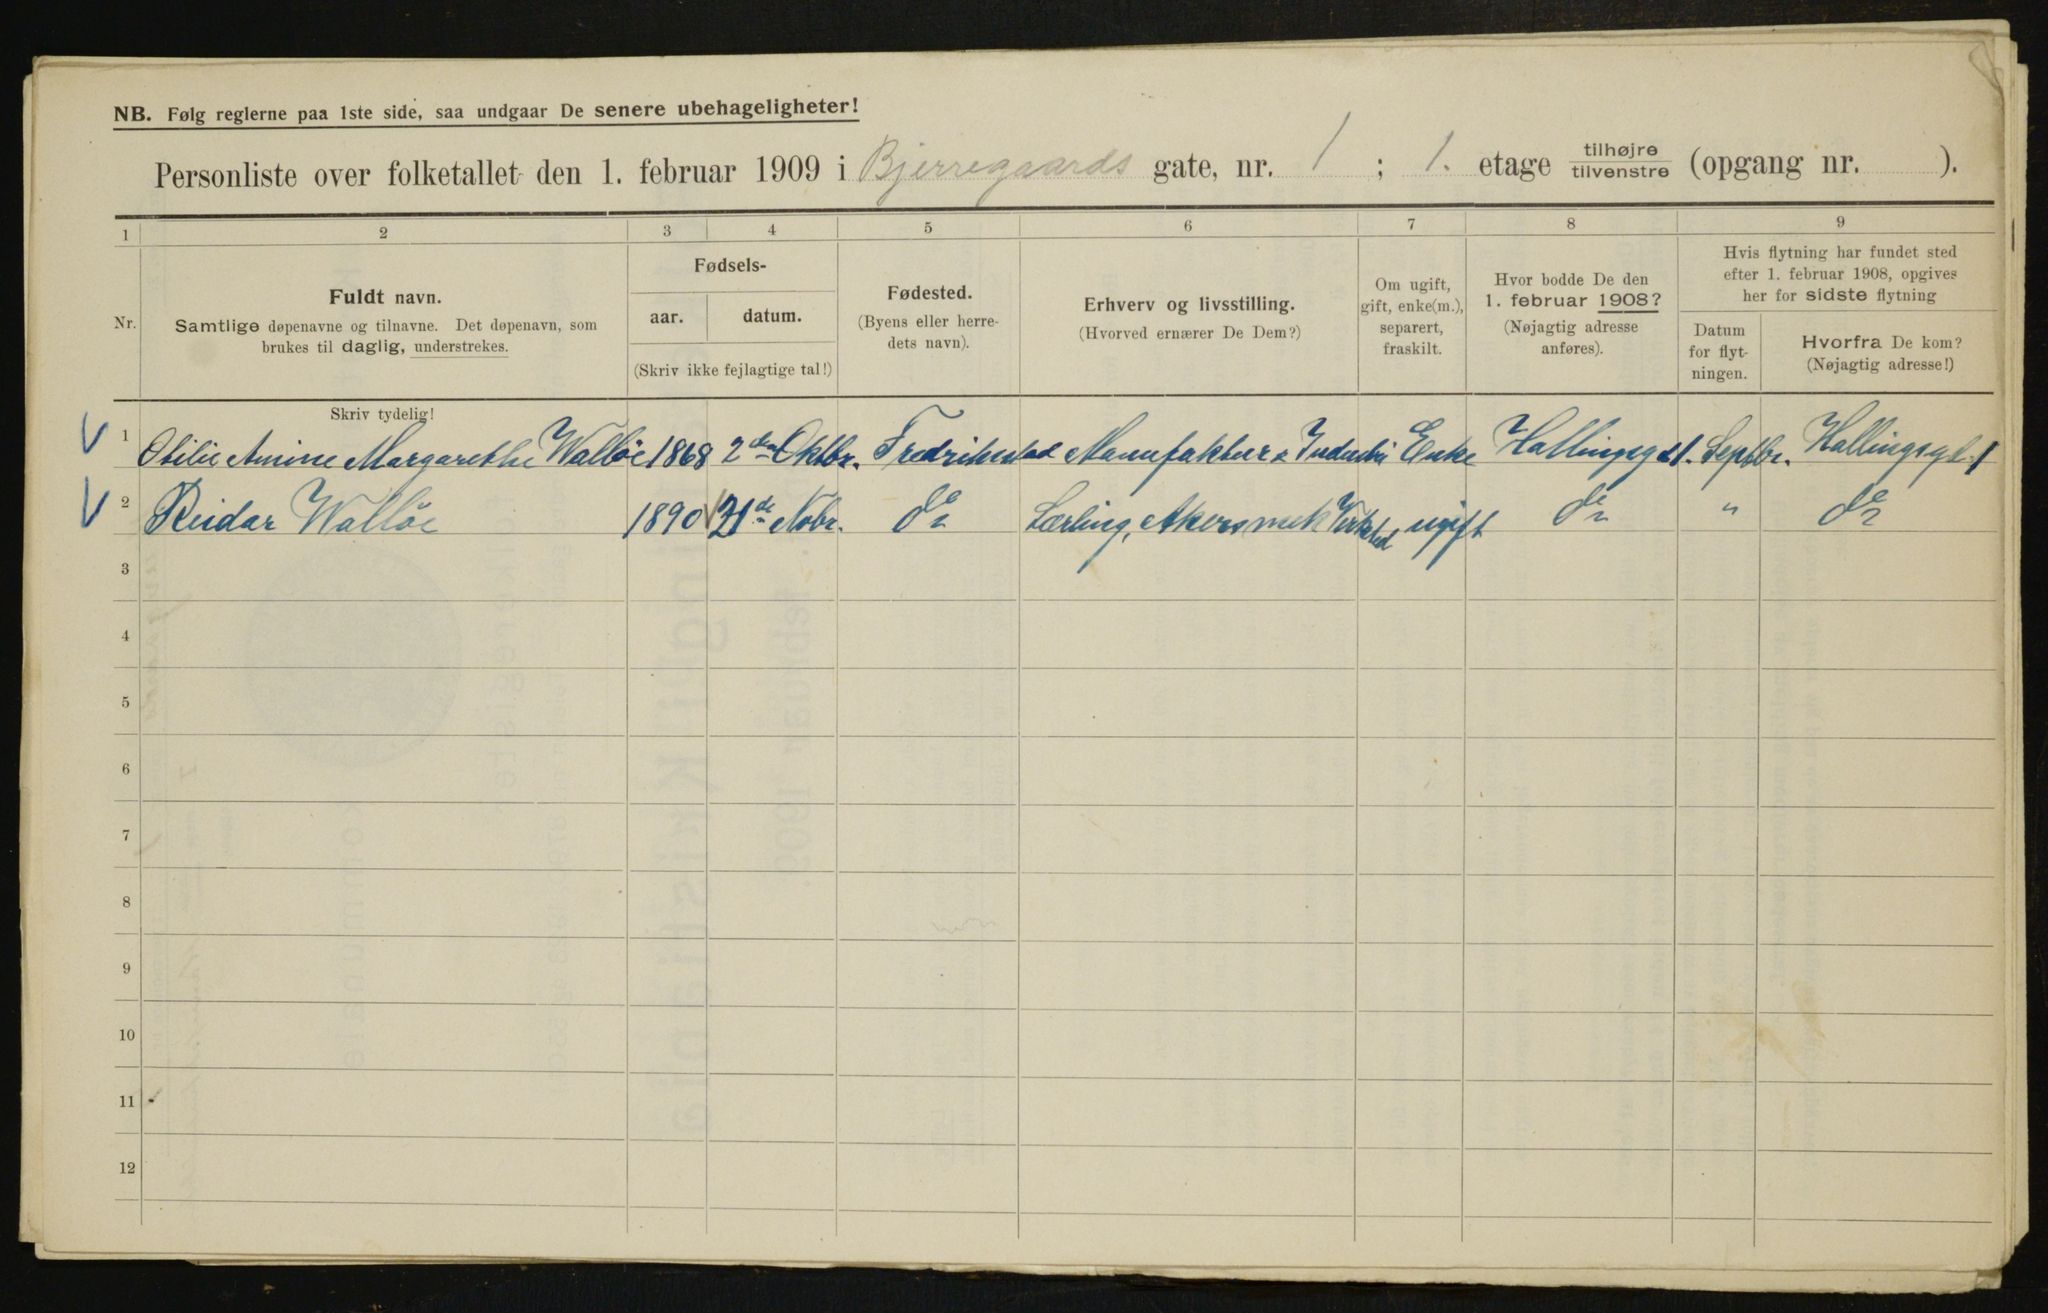 NB. Følg reglerne paa 1ste side, saa undgaar De senere ubehageligheter!
Personliste over folketallet den 1. februar 1909 i Bjerregaards gate, nr. 1 ; 1. etage tilhøjre tilvenstre (opgang nr. ).
1 2 3 4 5 6 7 8 9
Nr.
Fuldt navn.
Samtlige døpenavne og tilnavne. Det døpenavn, som
brukes til daglig, understrekes.
Skriv tydelig!
Fødsels-
aar. datum.
(Skriv ikke fejlagtige tal!)
Fødested.
(Byens eller herre-
dets navn).
Erhverv og livsstilling.
(Hvorved ernærer De Dem?)
Om ugift,
gift, enke(m.),
separert,
fraskilt.
Hvor bodde De den
1. februar 1908?
(Nøjagtig adresse
anføres).
Hvis flytning har fundet sted
efter 1. februar 1908, opgives
her for sidste flytning
Datum
for flyt-
ningen.
Hvorfra De kom?
(Nøjagtig adresse!)
1 Otilie Amine Margarethe Walløe 1868 2den Oktbr. Fredrikstad Manufaktur & Industri Enke Hallingsgt 1. Septbr. Hallingsgt. 1
2 Reidar Walløe 1890 21de Nobr. do Lærling, Akers mek Verksted ugift do " do
3
4
5
6
7
8
9
10
11
12